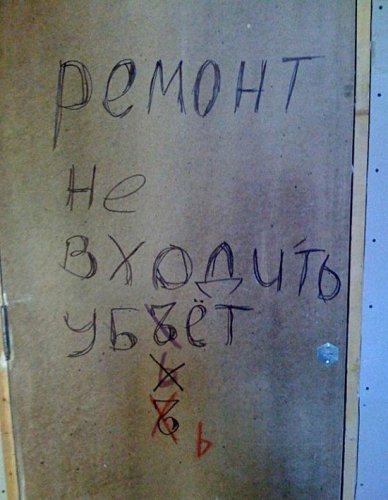 Ремонт
не
входить
убъёт
ь
ъ
ь